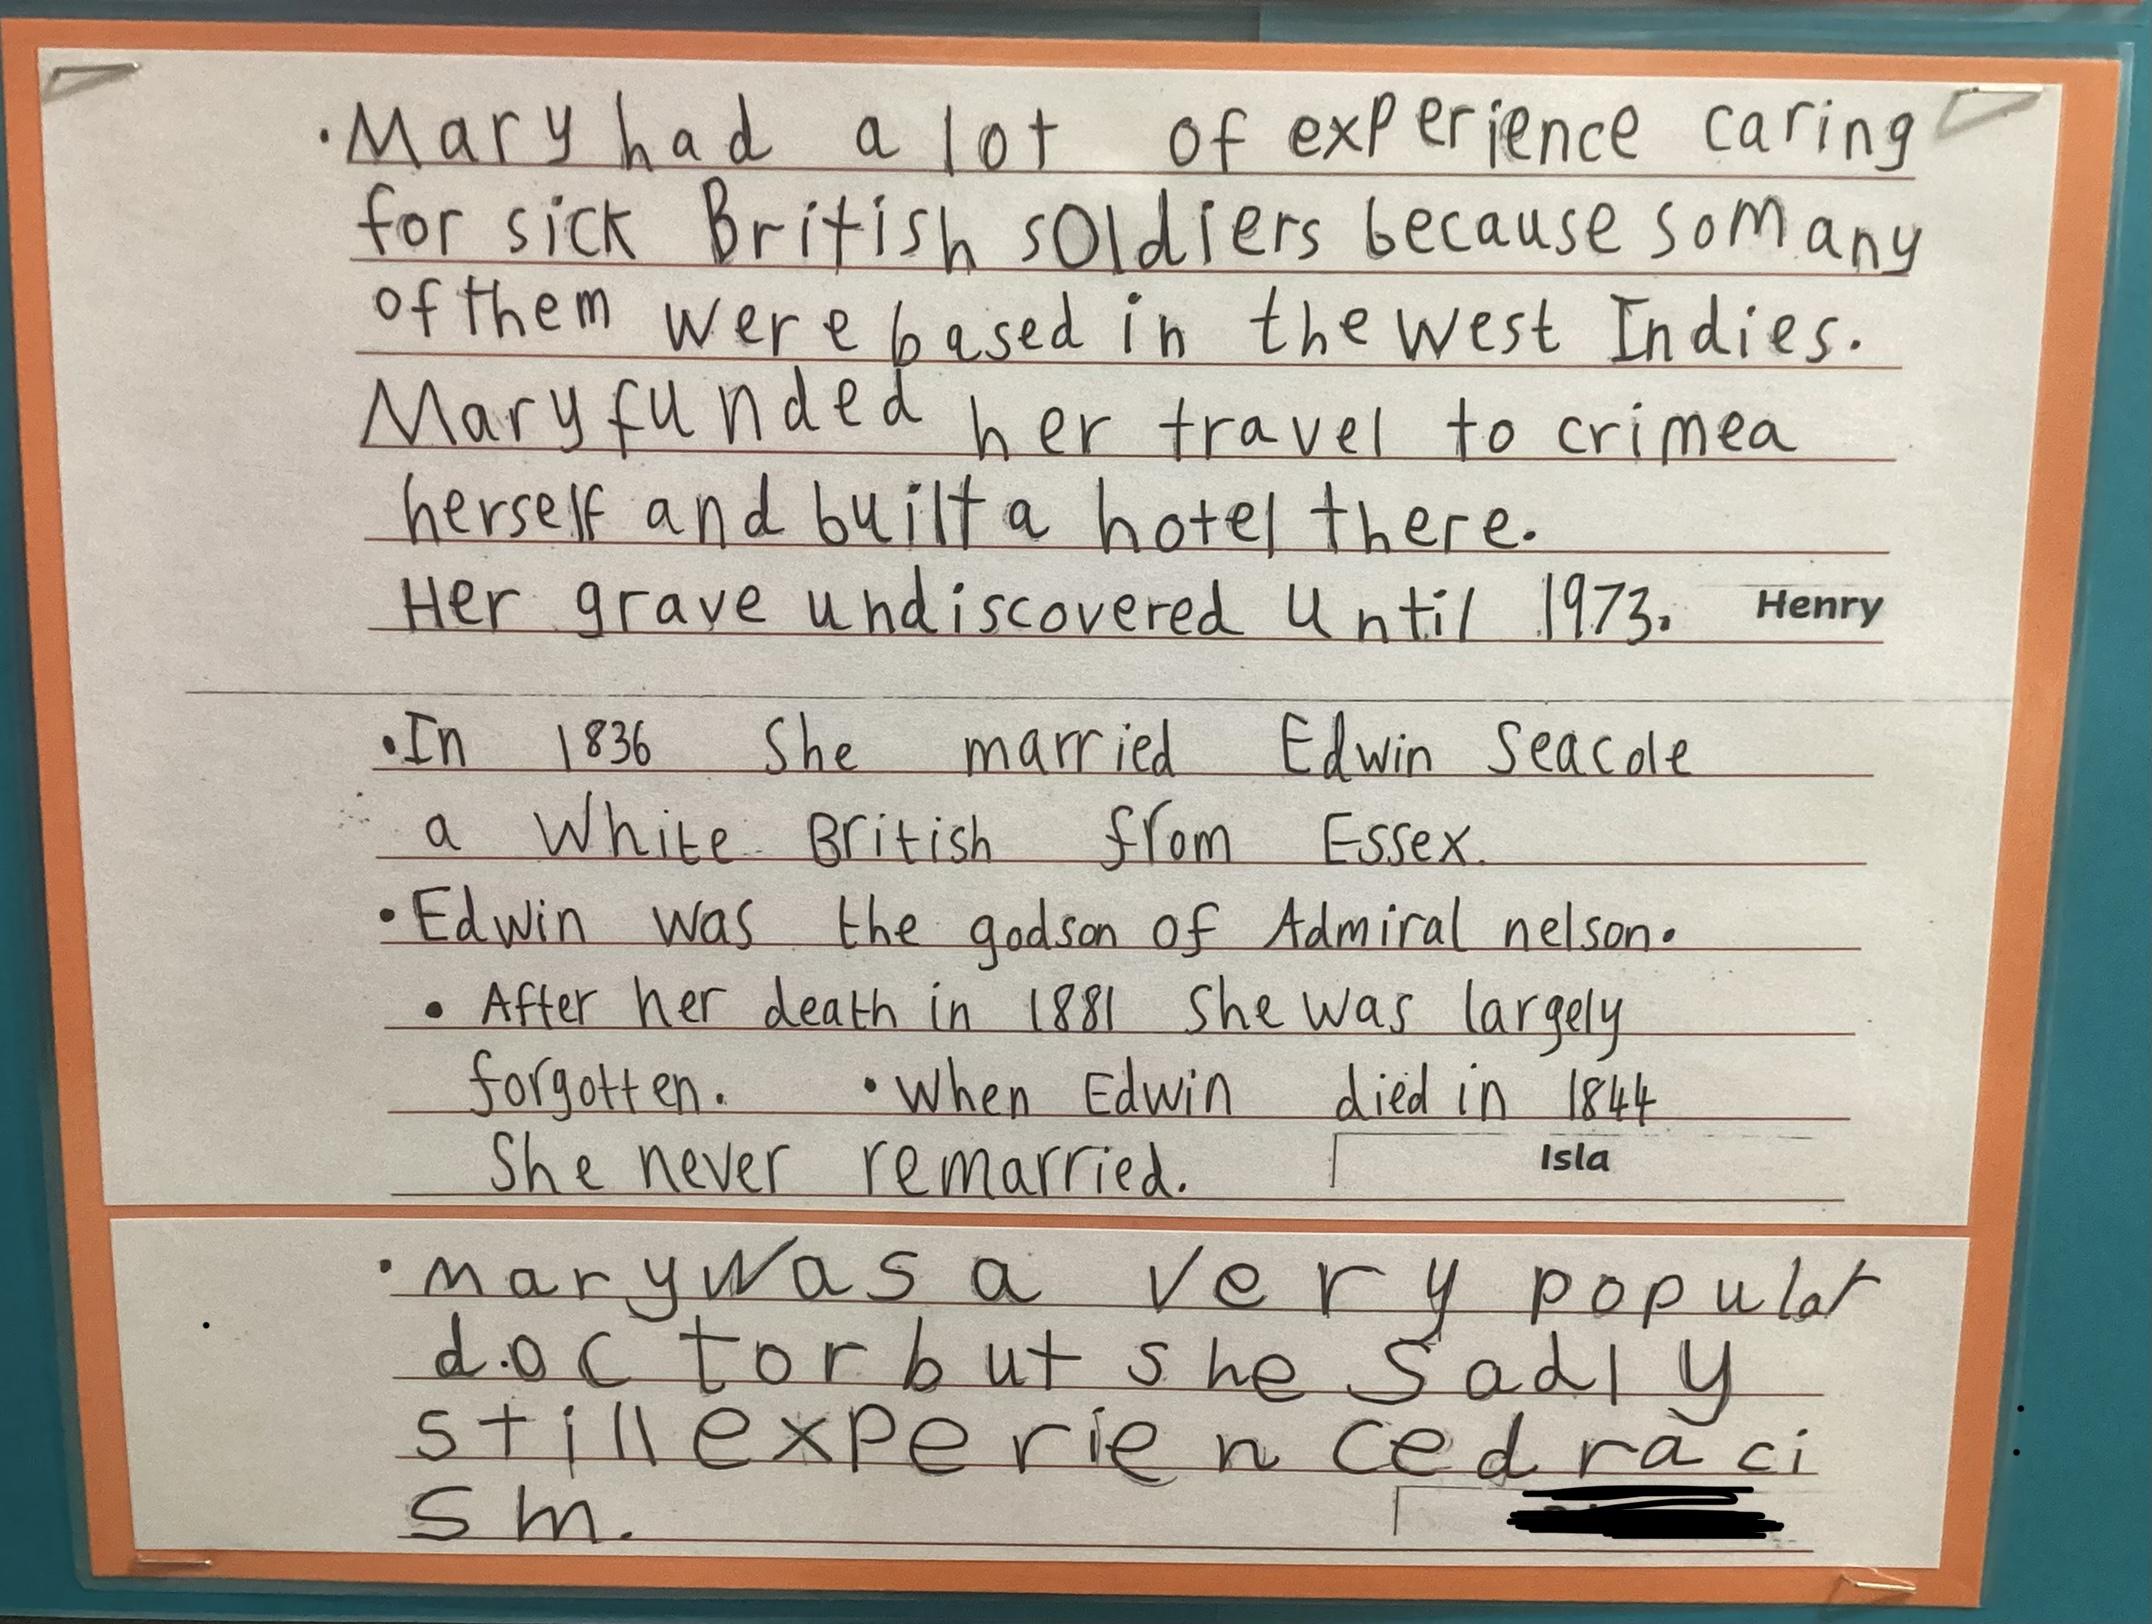 ·Mary had a lot of experience caring
for sick British soldiers because so many
of them were based in the west Indies.
Mary funded her travel to crimea
herself and built a hotel there.
Her grave undiscovered until 1973. Henry
•In 1836 She married Edwin Seacole
a White British from Essex.
•Edwin was the godson of Admiral nelson.
• After her death in 1881 She was largely
forgotten. •When Edwin died in 1844
She never remarried. Isla
·mary was a very popular
doctor but she Sadly
still experienced raci
sm.